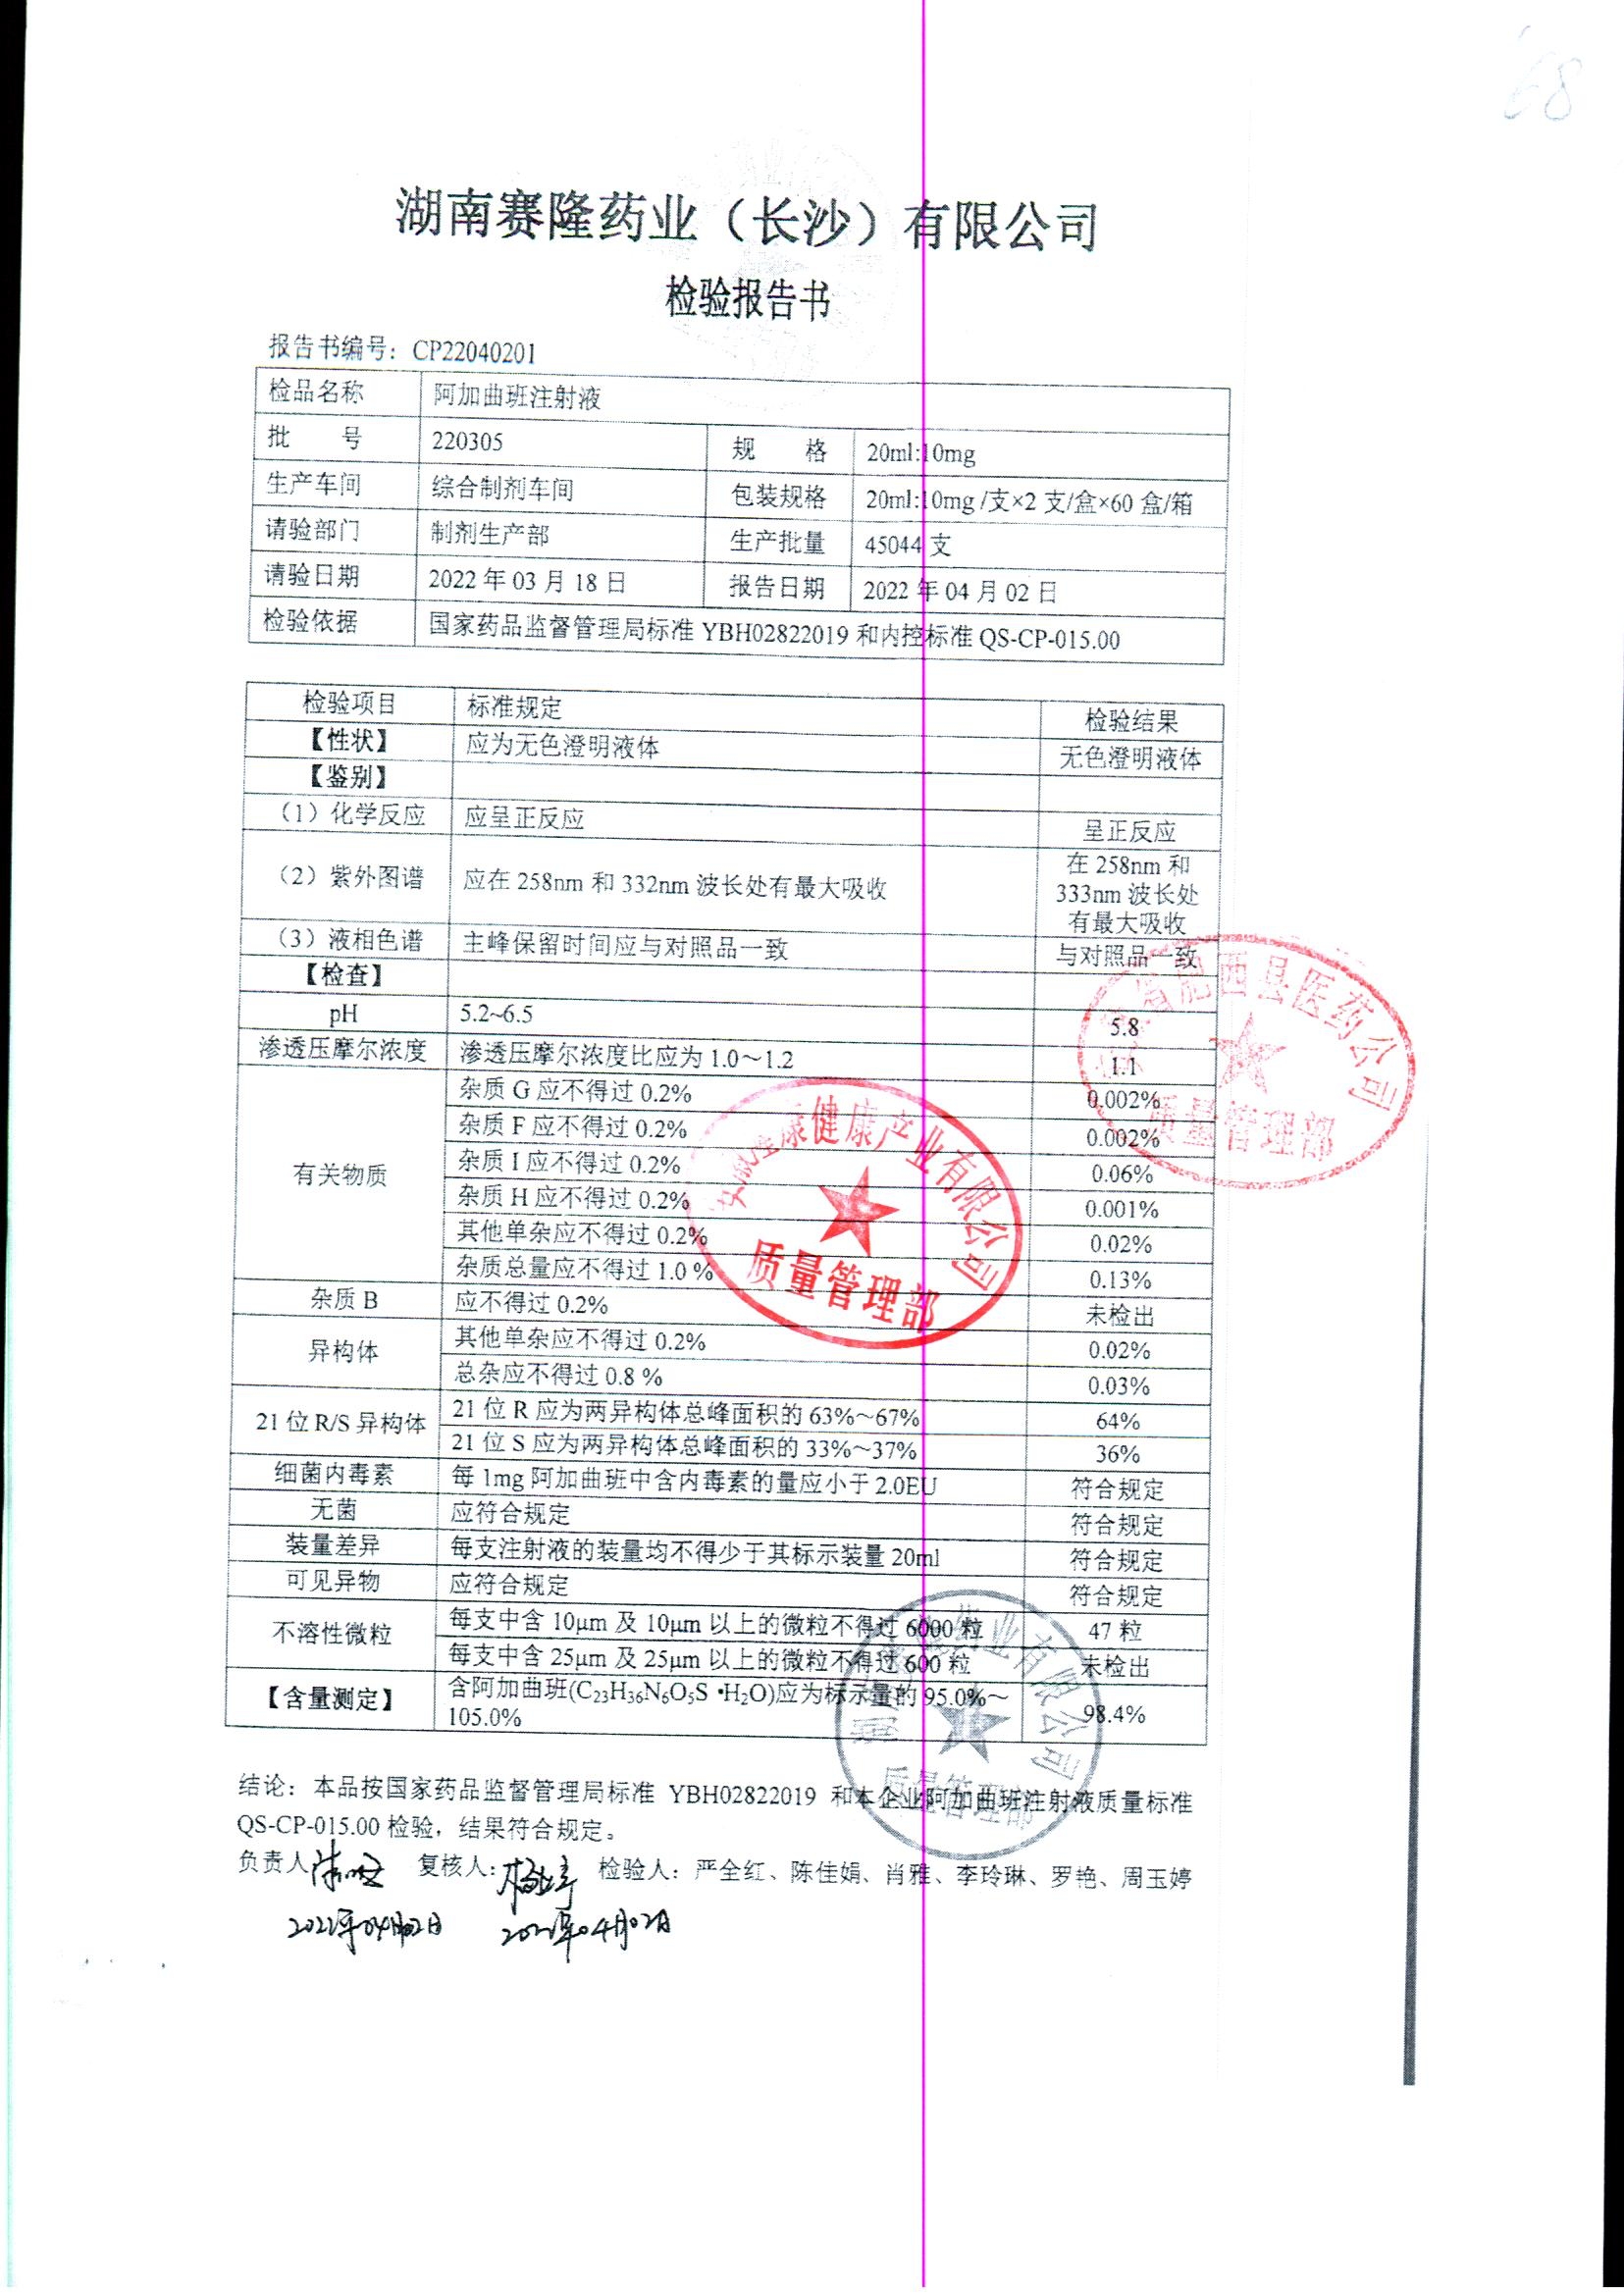 68
湖南赛隆药业（长沙）有限公司
检验报告书
报告书编号：CP22040201
检品名称 阿加曲班注射液
批 号 220305 规 格 20ml:10mg
生产车间 综合制剂车间 包装规格 20ml:10mg /支×2 支/盒×60 盒/箱
请验部门 制剂生产部 生产批量 45044 支
请验日期 2022 年 03 月 18 日 报告日期 2022 年 04 月 02 日
检验依据 国家药品监督管理局标准 YBH02822019 和内控标准 QS-CP-015.00
检验项目 标准规定 检验结果
【性状】 应为无色澄明液体 无色澄明液体
【鉴别】
（1）化学反应 应呈正反应 呈正反应
（2）紫外图谱 应在 258nm 和 332nm 波长处有最大吸收 在 258nm 和
333nm 波长处
有最大吸收
（3）液相色谱 主峰保留时间应与对照品一致 与对照品一致
【检查】
pH 5.2~6.5 5.8
渗透压摩尔浓度 渗透压摩尔浓度比应为 1.0～1.2 1.1
有关物质 杂质 G 应不得过 0.2% 0.002%
杂质 F 应不得过 0.2% 0.002%
杂质 I 应不得过 0.2% 0.06%
杂质 H 应不得过 0.2% 0.001%
其他单杂应不得过 0.2% 0.02%
杂质总量应不得过 1.0 % 0.13%
杂质 B 应不得过 0.2% 未检出
异构体 其他单杂应不得过 0.2% 0.02%
总杂应不得过 0.8 % 0.03%
21 位 R/S 异构体 21 位 R 应为两异构体总峰面积的 63%～67% 64%
21 位 S 应为两异构体总峰面积的 33%～37% 36%
细菌内毒素 每 1mg 阿加曲班中含内毒素的量应小于 2.0EU 符合规定
无菌 应符合规定 符合规定
装量差异 每支注射液的装量均不得少于其标示装量 20ml 符合规定
可见异物 应符合规定 符合规定
不溶性微粒 每支中含 10μm 及 10μm 以上的微粒不得过 6000 粒 47 粒
每支中含 25μm 及 25μm 以上的微粒不得过 600 粒 未检出
【含量测定】 含阿加曲班(C₂₃H₃₆N₆O₅S •H₂O)应为标示量的 95.0%～
105.0% 98.4%
省肥西县医药公司
质量管理部
康健康产业有限公司
质量管理部
药业有限公司
质量管理部
结论：本品按国家药品监督管理局标准 YBH02822019 和本企业阿加曲班注射液质量标准
QS-CP-015.00 检验，结果符合规定。
负责人 复核人： 检验人：严全红、陈佳娟、肖雅、李玲琳、罗艳、周玉婷
2022年04月02日 2022年04月02日